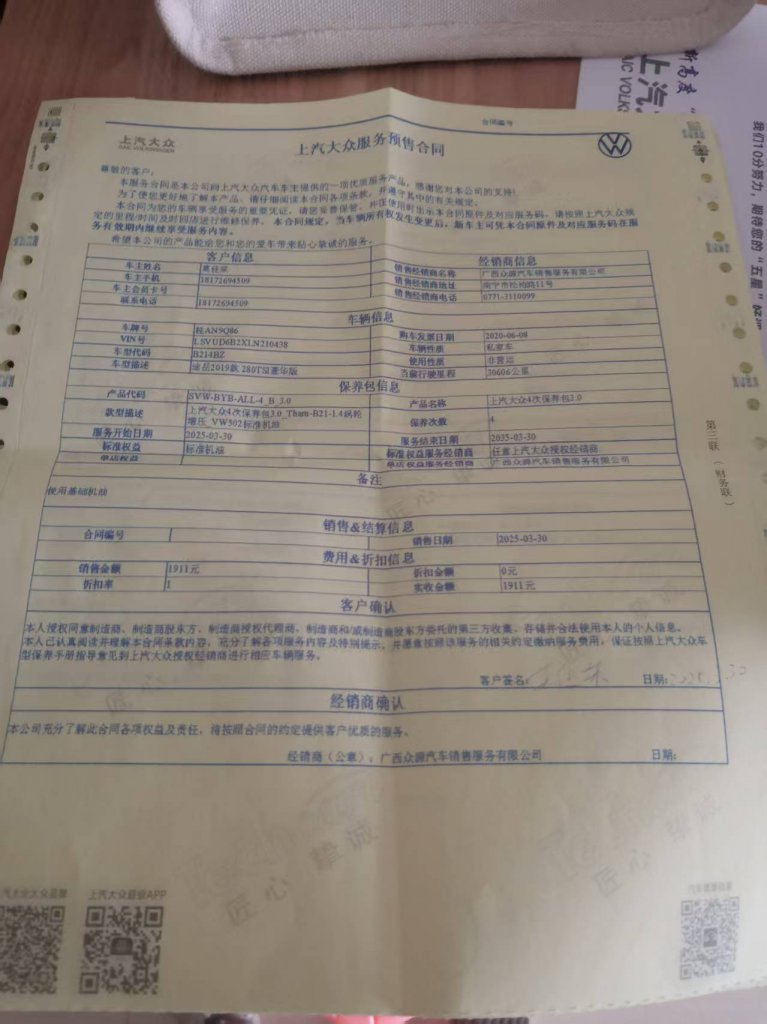 新高度"
上汽
SAIC VOLKS
我们10分努力，期待您的"五星"
合同编号
上汽大众
SAIC VOLKSWAGEN
上汽大众服务预售合同
尊敬的客户：
本服务合同是本公司向上汽大众汽车车主提供的一项优质服务产品，感谢您对本公司的支持！
为了使您更好地了解本产品，请仔细阅读本合同各项条款，并遵守其中的有关规定。
本合同为您的车辆享受服务的重要凭证，请您妥善保管，并在使用时出示本合同原件及对应服务码，请按照上汽大众规
定的里程/时间及时回站进行维修保养。本合同规定，当车辆所有权发生变更后，新车主可凭本合同原件及对应服务码在服
务有效期内继续享受服务内容。
希望本公司的产品能给您和您的爱车带来贴心挚诚的服务。
客户信息 经销商信息
车主姓名 销售经销商名称 广西众源汽车销售服务有限公司
车主手机 18172694509 销售经销商地址 南宁市松柏路11号
车主会员卡号 销售经销商电话 0771-3110099
联系电话 18172694509
车辆信息
车牌号 桂AN9Q86 购车发票日期 2020-06-08
VIN号 LSVUD6B2XLN210438 车辆性质 私家车
车型代码 B214BZ 使用性质 非营运
车型描述 途岳2019款 280TSI豪华版 当前行驶里程 30606公里
保养包信息
产品代码 SVW-BYB-ALL-4_B_3.0 产品名称 上汽大众4次保养包3.0
款型描述 上汽大众4次保养包3.0_Tharu-B21-1.4涡轮
增压_VW502标准机油 保养次数 4
服务开始日期 2025-03-30 服务结束日期 2035-03-30
标准权益 标准机油 标准权益服务经销商 任意上汽大众授权经销商
单店权益 单店权益服务经销商 广西众源汽车销售服务有限公司
备注
使用基础机油
销售&结算信息
合同编号 销售日期 2025-03-30
费用&折扣信息
销售金额 1911元 折扣金额 0元
折扣率 1 实收金额 1911元
客户确认
本人授权同意制造商、制造商股东方、制造商授权代理商、制造商和/或制造商股东方委托的第三方收集、存储并合法使用本人的个人信息。
本人已认真阅读并理解本合同条款内容，充分了解各项服务内容及特别提示，并愿意按照该服务的相关约定缴纳服务费用，保证按照上汽大众车
型保养手册指导意见到上汽大众授权经销商进行相应车辆服务。
客户签名： 日期：
经销商确认
本公司充分了解此合同各项权益及责任，将按照合同的约定提供客户优质的服务。
经销商（公章）：广西众源汽车销售服务有限公司 日期：
第三联（财务联）
匠心 挚诚
匠心 挚诚
上汽大众超级APP